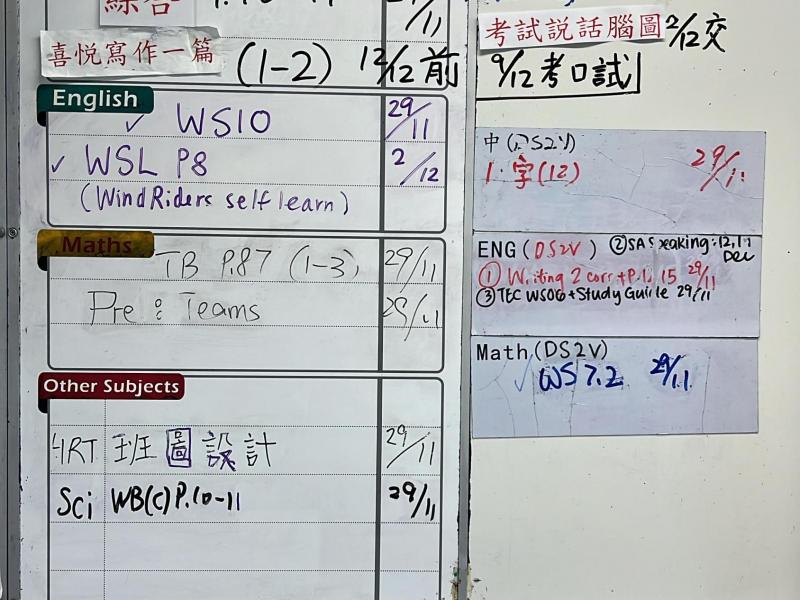 綜合
29/11
喜悅寫作一篇 (1-2) 12/12前
English
✓ WS10 29/11
✓ WSL P8 2/12
(WindRiders self learn)
Maths
TB P.87 (1-3) 29/11
Pre : Teams 29/11
Other Subjects
ART 班圖設計 29/11
Sci WB(C) P.10-11 29/11
考試說話腦圖 2/12交
9/12考口試
中(DS2V)
1. 字(12) 29/11
ENG(DS2V) ②SA Speaking:12,17 Dec
① Writing 2 corr+P.L 15 29/11
③TEC WS06+Study Guide 29/11
Math(DS2V)
✓ WS 7.2 29/11